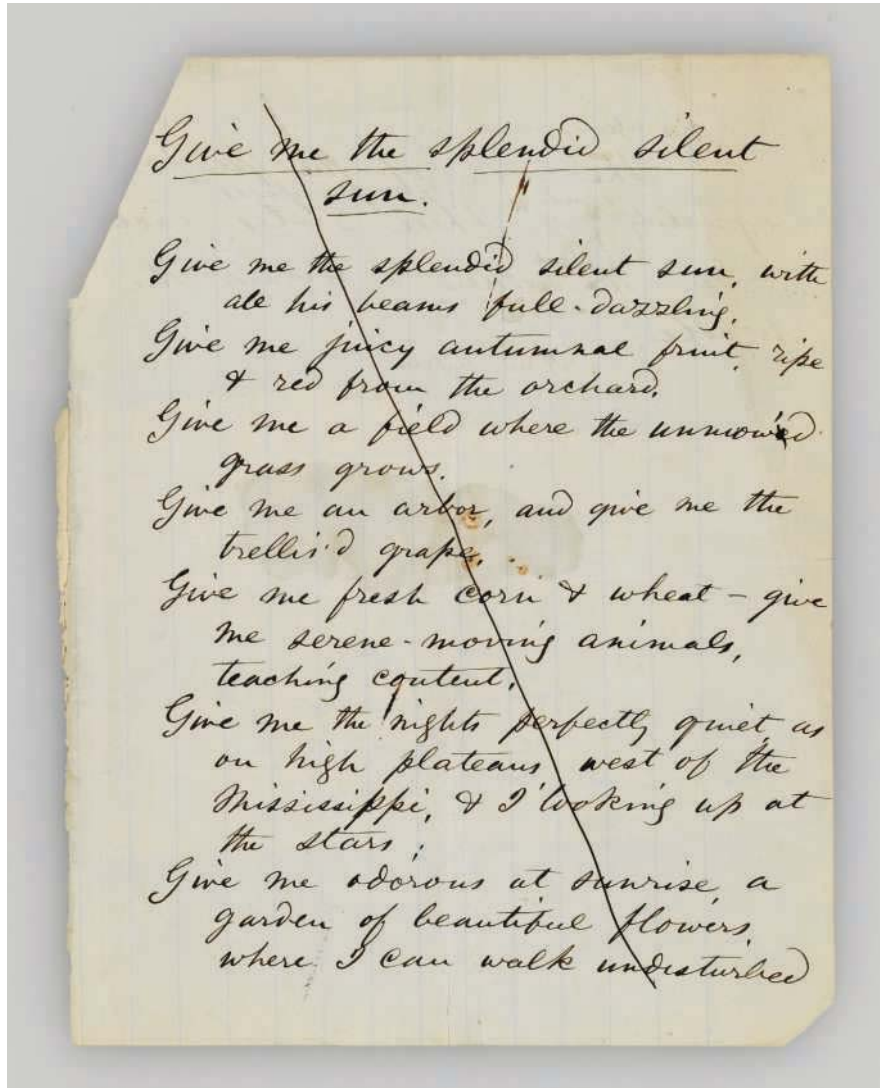 Give me the splendid silent
sun.
Give me the splendid silent sun, with
all his beams full-dazzling,
Give me juicy autumnal fruit, ripe
& red from the orchard,
Give me a field where the unmowed
grass grows,
Give me an arbor, and give me the
trellis'd grape,
Give me fresh corn & wheat – give
me serene-moving animals,
teaching content,
Give me the nights perfectly quiet, as
on high plateaus west of the
Mississippi, & I looking up at
the stars;
Give me odorous at sunrise a
garden of beautiful flowers,
where I can walk undisturbed